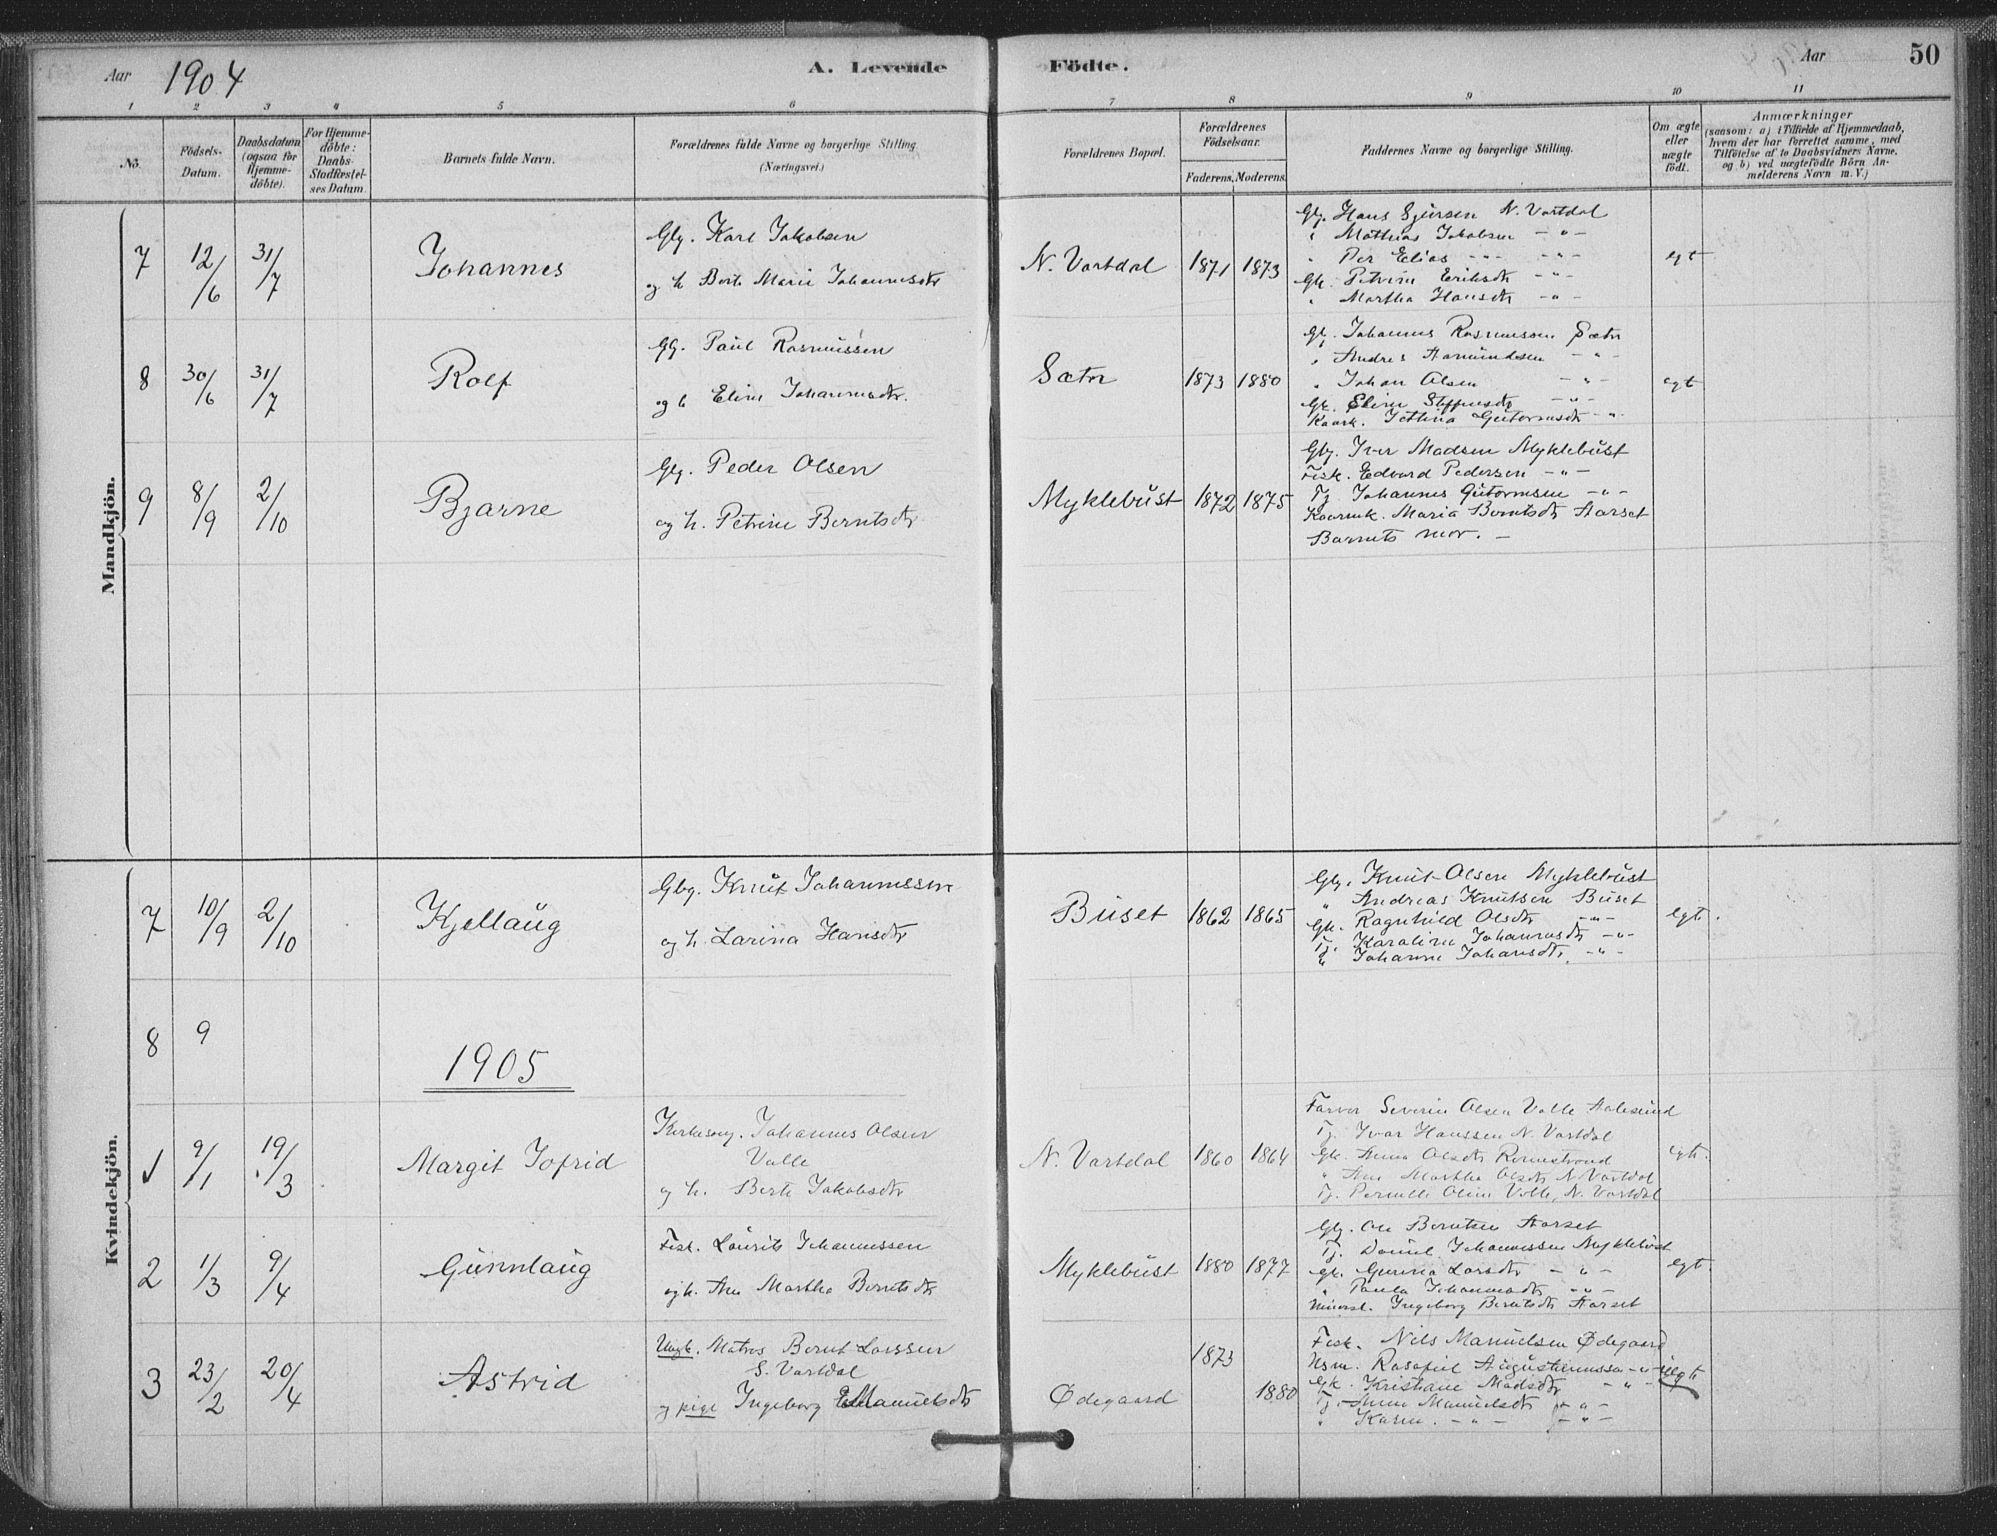 Aar 1904 A. Levende Födte. Aar 50
1 2 3 4 5 6 7 8 9 10 11
No.
Födsels-
Datum.
Daabsdatum
(ogsaa for
Hjemme-
döbte).
For Hjemme-
döbte:
Daabs-
Stadfæstel-
ses Datum.
Barnets fulde Navn.
Forældrenes fulde Navne og borgerlige Stilling.
(Næringsvei.)
Forældrenes Bopæl.
Forældrenes
Födselsaar.
Faderens. Moderens.
Faddernes Navne og borgerlige Stilling.
Om ægte
eller
uægte
födt.
Anmærkninger
(saasom: a) i Tilfælde af Hjemmedaab,
hvem der har forrettet samme, med
Tilföielse af to Daabsvidners Navne,
og b) ved uægtefödte Börn An-
melderens Navn m. V.)
Mandkjön.
7 12/6 31/7 Johannes
Gbg. Karl Jakobsen
og h Berte Marie Johannesdtr
N. Vartdal 1871 1873
Gbg. Hans Sjursen N. Vartdal
" Mathias Jakobsen - " -
" Per Elias - " - - " -
Gk. Petrine Eriksdtr - " -
" Martha Hansdtr - " -
egt
8 30/6 31/7 Rolf
Gbg. Paul Rasmussen
og h Eline Johannesdtr.
Sætre 1873 1880
Gbg. Johannes Rasmussen Sætre
" Andres Aamundsen - " -
" Johan Olsen - " -
Gk. Eline Steffensdtr - " -
Kaark. Jettina Guttormsdtr - " -
egt
9 8/9 2/10 Bjarne
Gbg. Peder Olsen
og h. Petrine Berntsdtr
Myklebust 1872 1875
Gbg. Iver Madsen Myklebust
Fisk. Edvard Pedersen - " -
Tj. Johannes Guttormsen - " -
Kaark. Maria Berntsdtr Aarset
Barnets mor. -
Kvindekjön.
7 10/9 2/10 Kjellaug
Gbg. Knut Johannessen
og h. Larina Hansdtr
Buset 1862 1865
Gbg. Knut Olsen Myklebust
" Andreas Knutsen Buset
Gk. Ragnhild Olsdtr - " -
Tj. Karoline Johannesdtr - " -
" Johanne Johansdtr. - " -
egt.
8 9
1905
1 9/1 19/3 Margit Jofrid
Kirkesang. Johannes Olsen
Valle
og h. Berte Jakobsdtr
N. Vartdal 1860 1864
Farver Severin Olsen Valle Aalesund
Tj. Ivar Hanssen N. Vartdal
Gk. Anna Olsdtr
" Ane Martha Olsdtr N. Vartdal
Tj. Pernille Oline Valle, N. Vartdal
egt.
2 1/3 9/4 Gunnlaug
Fisk. Laurits Johannessen
og h. Ane Martha Berntsdtr
Myklebust 1880 1877
Gbg. Ole Berntsen Aarset
Tj. Daniel Johannessen Myklebust
Gk. Gurina Larsdtr - " -
" Paula Johannesdtr - " -
Ingeborg Berntsdtr Aarset
egt.
3 23/2 20/4 Astrid
Ungk. Matros Bernt Larssen
S. Vartdal
og pige Ingeborg Emanuelsdtr
Ødegaard 1873 1880
Fisk. Nils Manuelsen Ødegaard
Hsm. Rasafiel Augustinussen - " -
Gk. Kristiane Madsdtr - " -
Tj. Anne Manuelsdtr - " -
" Karen - " - - " -
uegte